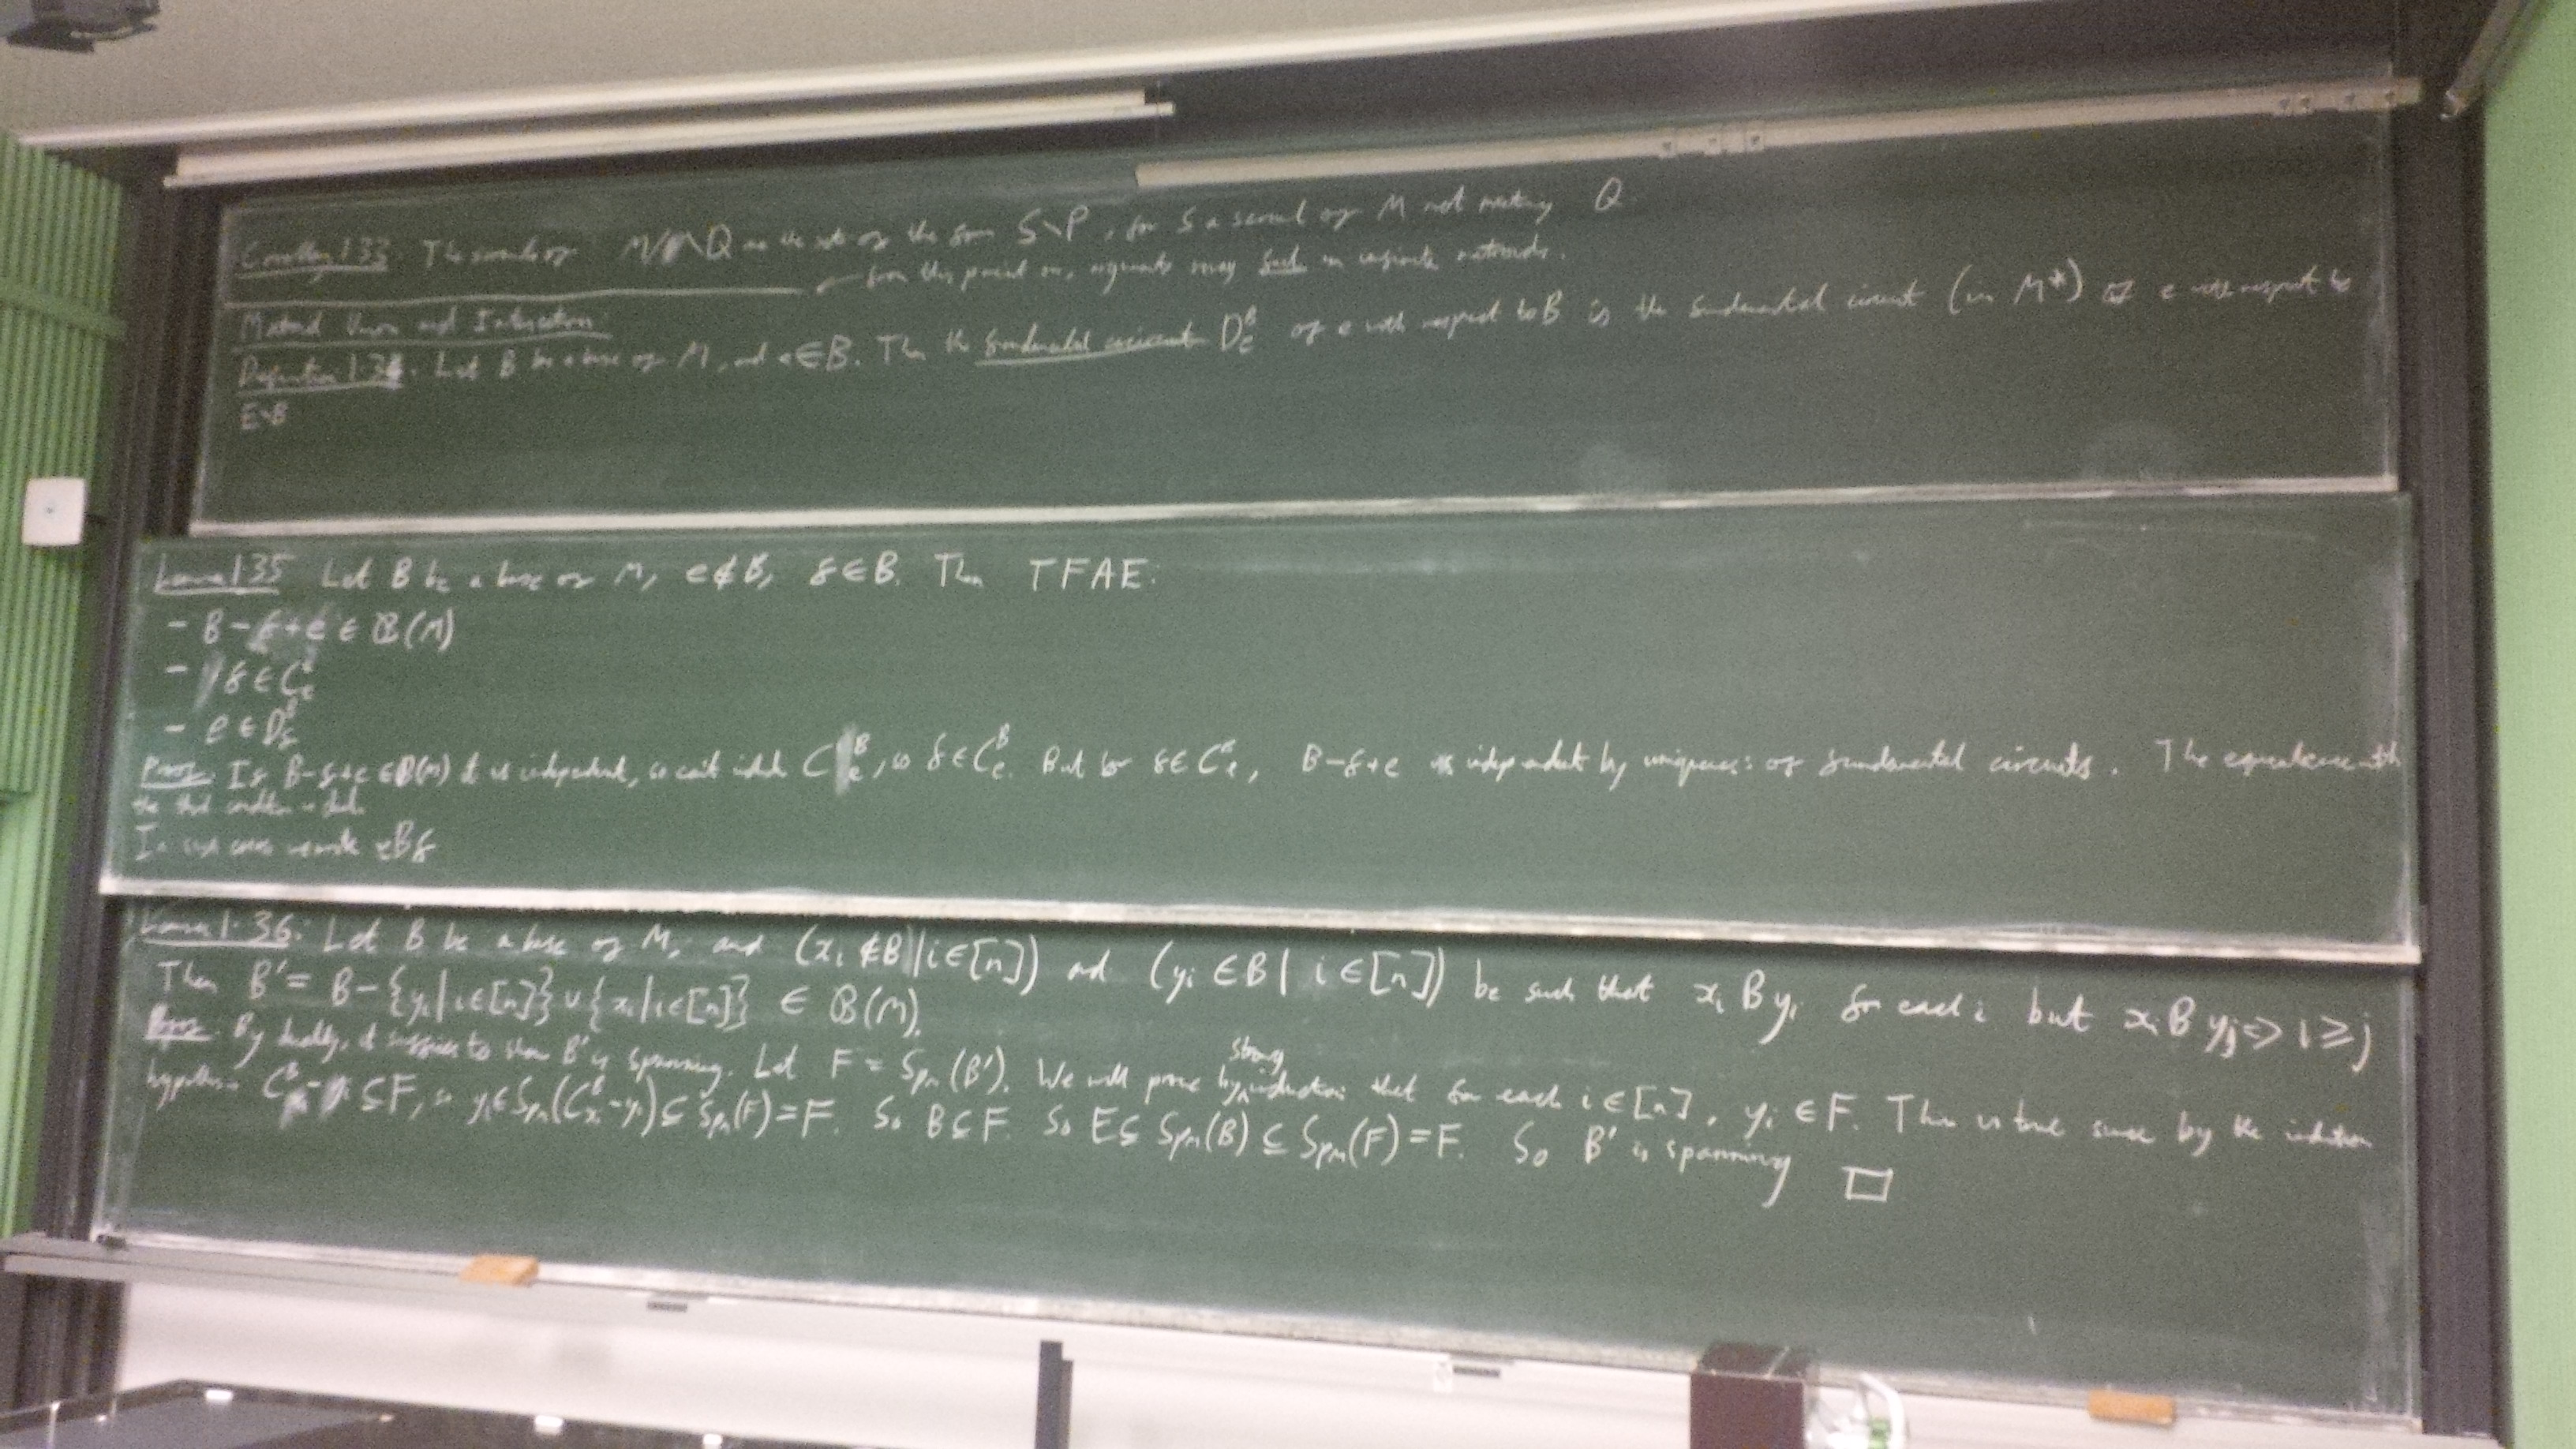 Corollary 1.33: The scrawls of M/P\Q are the sets of the form S\P, for S a scrawl of M not meeting Q.
from this point on, arguments may fail in infinite matroids.
Matroid Union and Intersection:
Definition 1.34: Let B be a base of M, and e∈B. Then the fundamental cocircuit D_e^B of e with respect to B is the fundamental circuit (in M*) of e with respect to
E\B
Lemma 1.35 Let B be a base of M, e∉B, f∈B. Then TFAE:
- B-f+e ∈ B(M)
- f∈C_e^B
- e∈D_f^B
Proof: If B-f+e ∈ B(M) it is independent, so can't include C_e^B, so f∈C_e^B. But for f∈C_e^B, B-f+e is independent by uniqueness of fundamental circuits. The equivalence with
the third condition is dual.
In such cases we write eBf
Lemma 1.36: Let B be a base of M, and (x_i ∉B | i∈[n]) and (y_i ∈B | i∈[n]) be such that x_i B y_i for each i but x_i B y_j => i ≥ j
Then B' = B-{y_i | i∈[n]} ∪ {x_i | i∈[n]} ∈ B(M).
Proof: By duality, it suffices to show B' is spanning. Let F = Sp_M(B'). We will prove by strong induction that for each i∈[n], y_i ∈F. This is true since by the induction
hypothesis C_{x_i}^B - y_i ⊆F, so y_i∈Sp_M(C_{x_i}^B - y_i) ⊆ Sp_M(F) = F. So B⊆F. So E⊆ Sp_M(B) ⊆ Sp_M(F) = F. So B' is spanning □